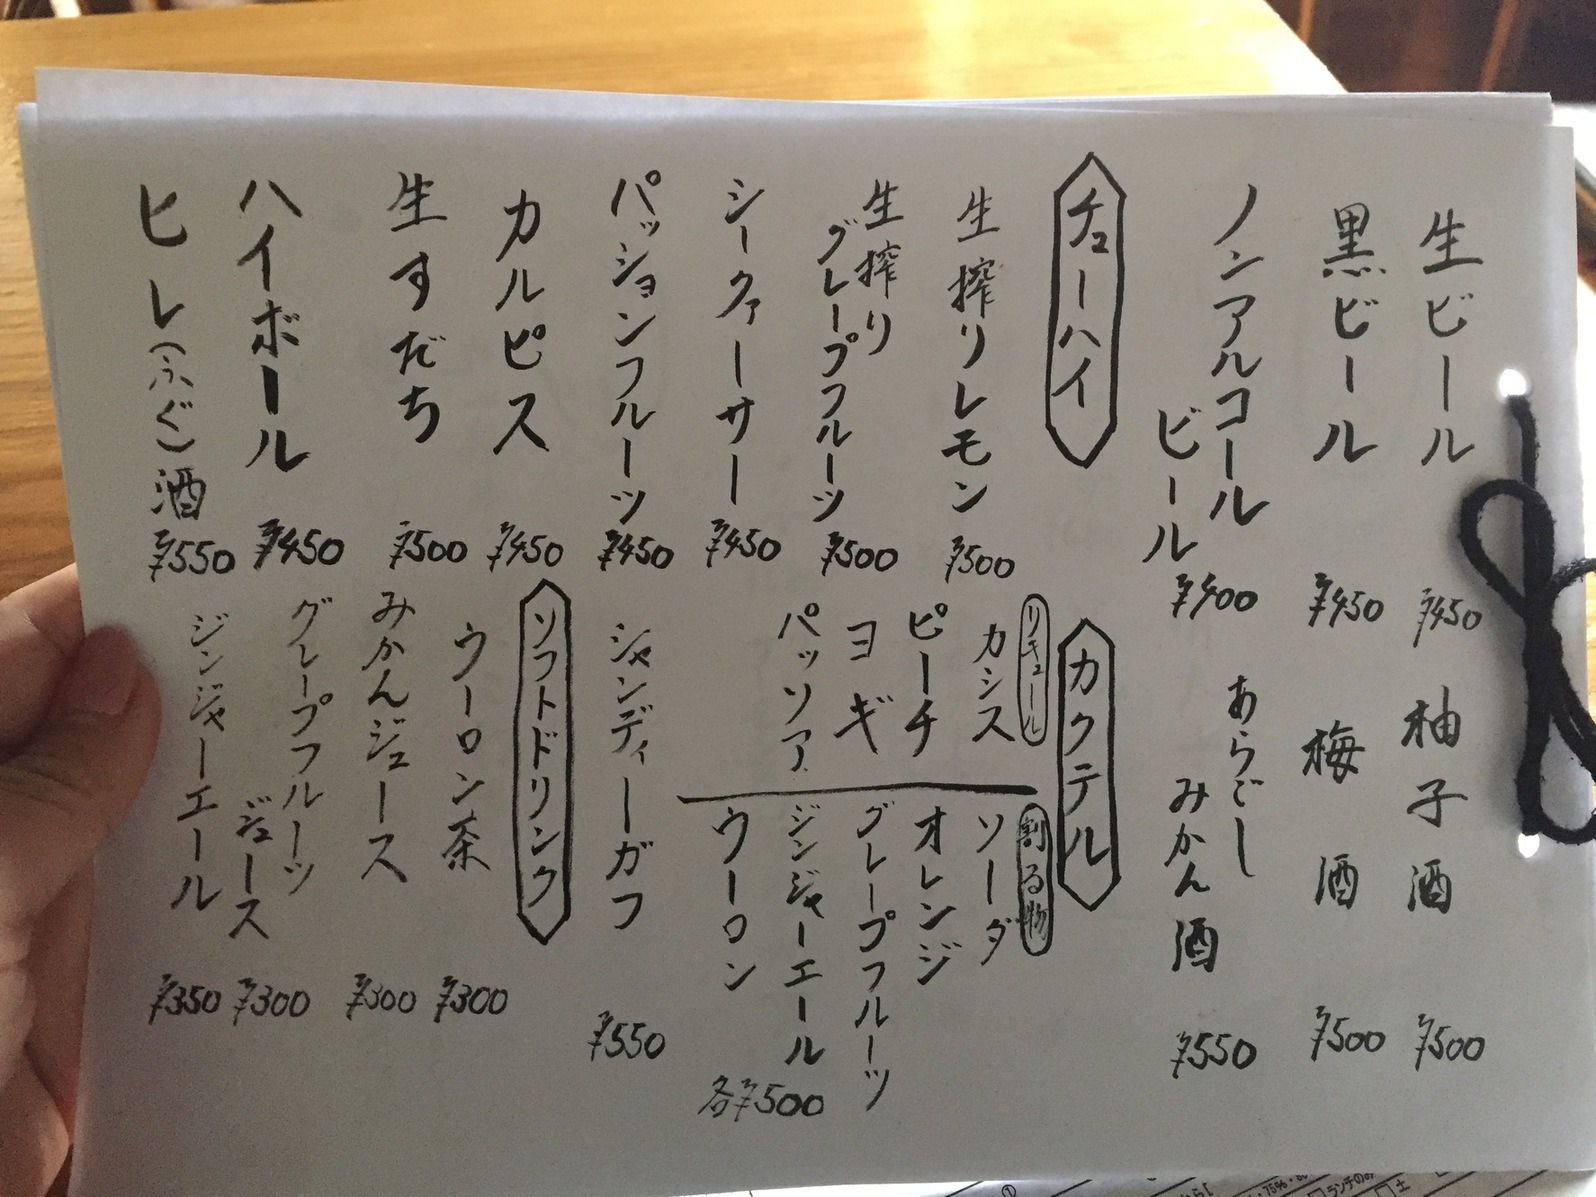 生ビール ¥450
黒ビール ¥450
ノンアルコール
ビール ¥400
チューハイ
生搾りレモン ¥500
生搾り
グレープフルーツ ¥500
シークァーサー ¥450
パッションフルーツ ¥450
カルピス ¥450
生すだち ¥500
ハイボール ¥450
ヒレ(ふぐ)酒 ¥550
柚子酒 ¥500
梅酒 ¥500
あらごし
みかん酒 ¥550
カクテル
リキュール
カシス
ピーチ
ヨギ
パッソア
割る物
ソーダ
オレンジ
グレープフルーツ
ジンジャーエール
ウーロン
各¥500
シャンディーガフ ¥550
ソフトドリンク
ウーロン茶 ¥300
みかんジュース ¥300
グレープフルーツ
ジュース ¥300
ジンジャーエール ¥350